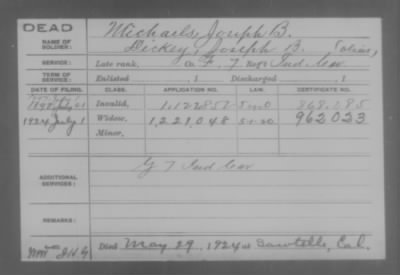 DEAD
NAME OF SOLDIER: Michaels, Joseph B.
Dickey, Joseph B. (alias)
SERVICE: Late rank, Co. F, 7 Reg't Ind Cav
TERM OF SERVICE: Enlisted , 1 Discharged , 1
DATE OF FILING. CLASS. APPLICATION NO. LAW. CERTIFICATE NO.
Invalid,
1924 July 1 Widow, 1,221,048 962023
Minor,
ADDITIONAL SERVICES: G 7 Ind Cav
REMARKS:
Died May 29, 1924 at Sawtelle, Cal.